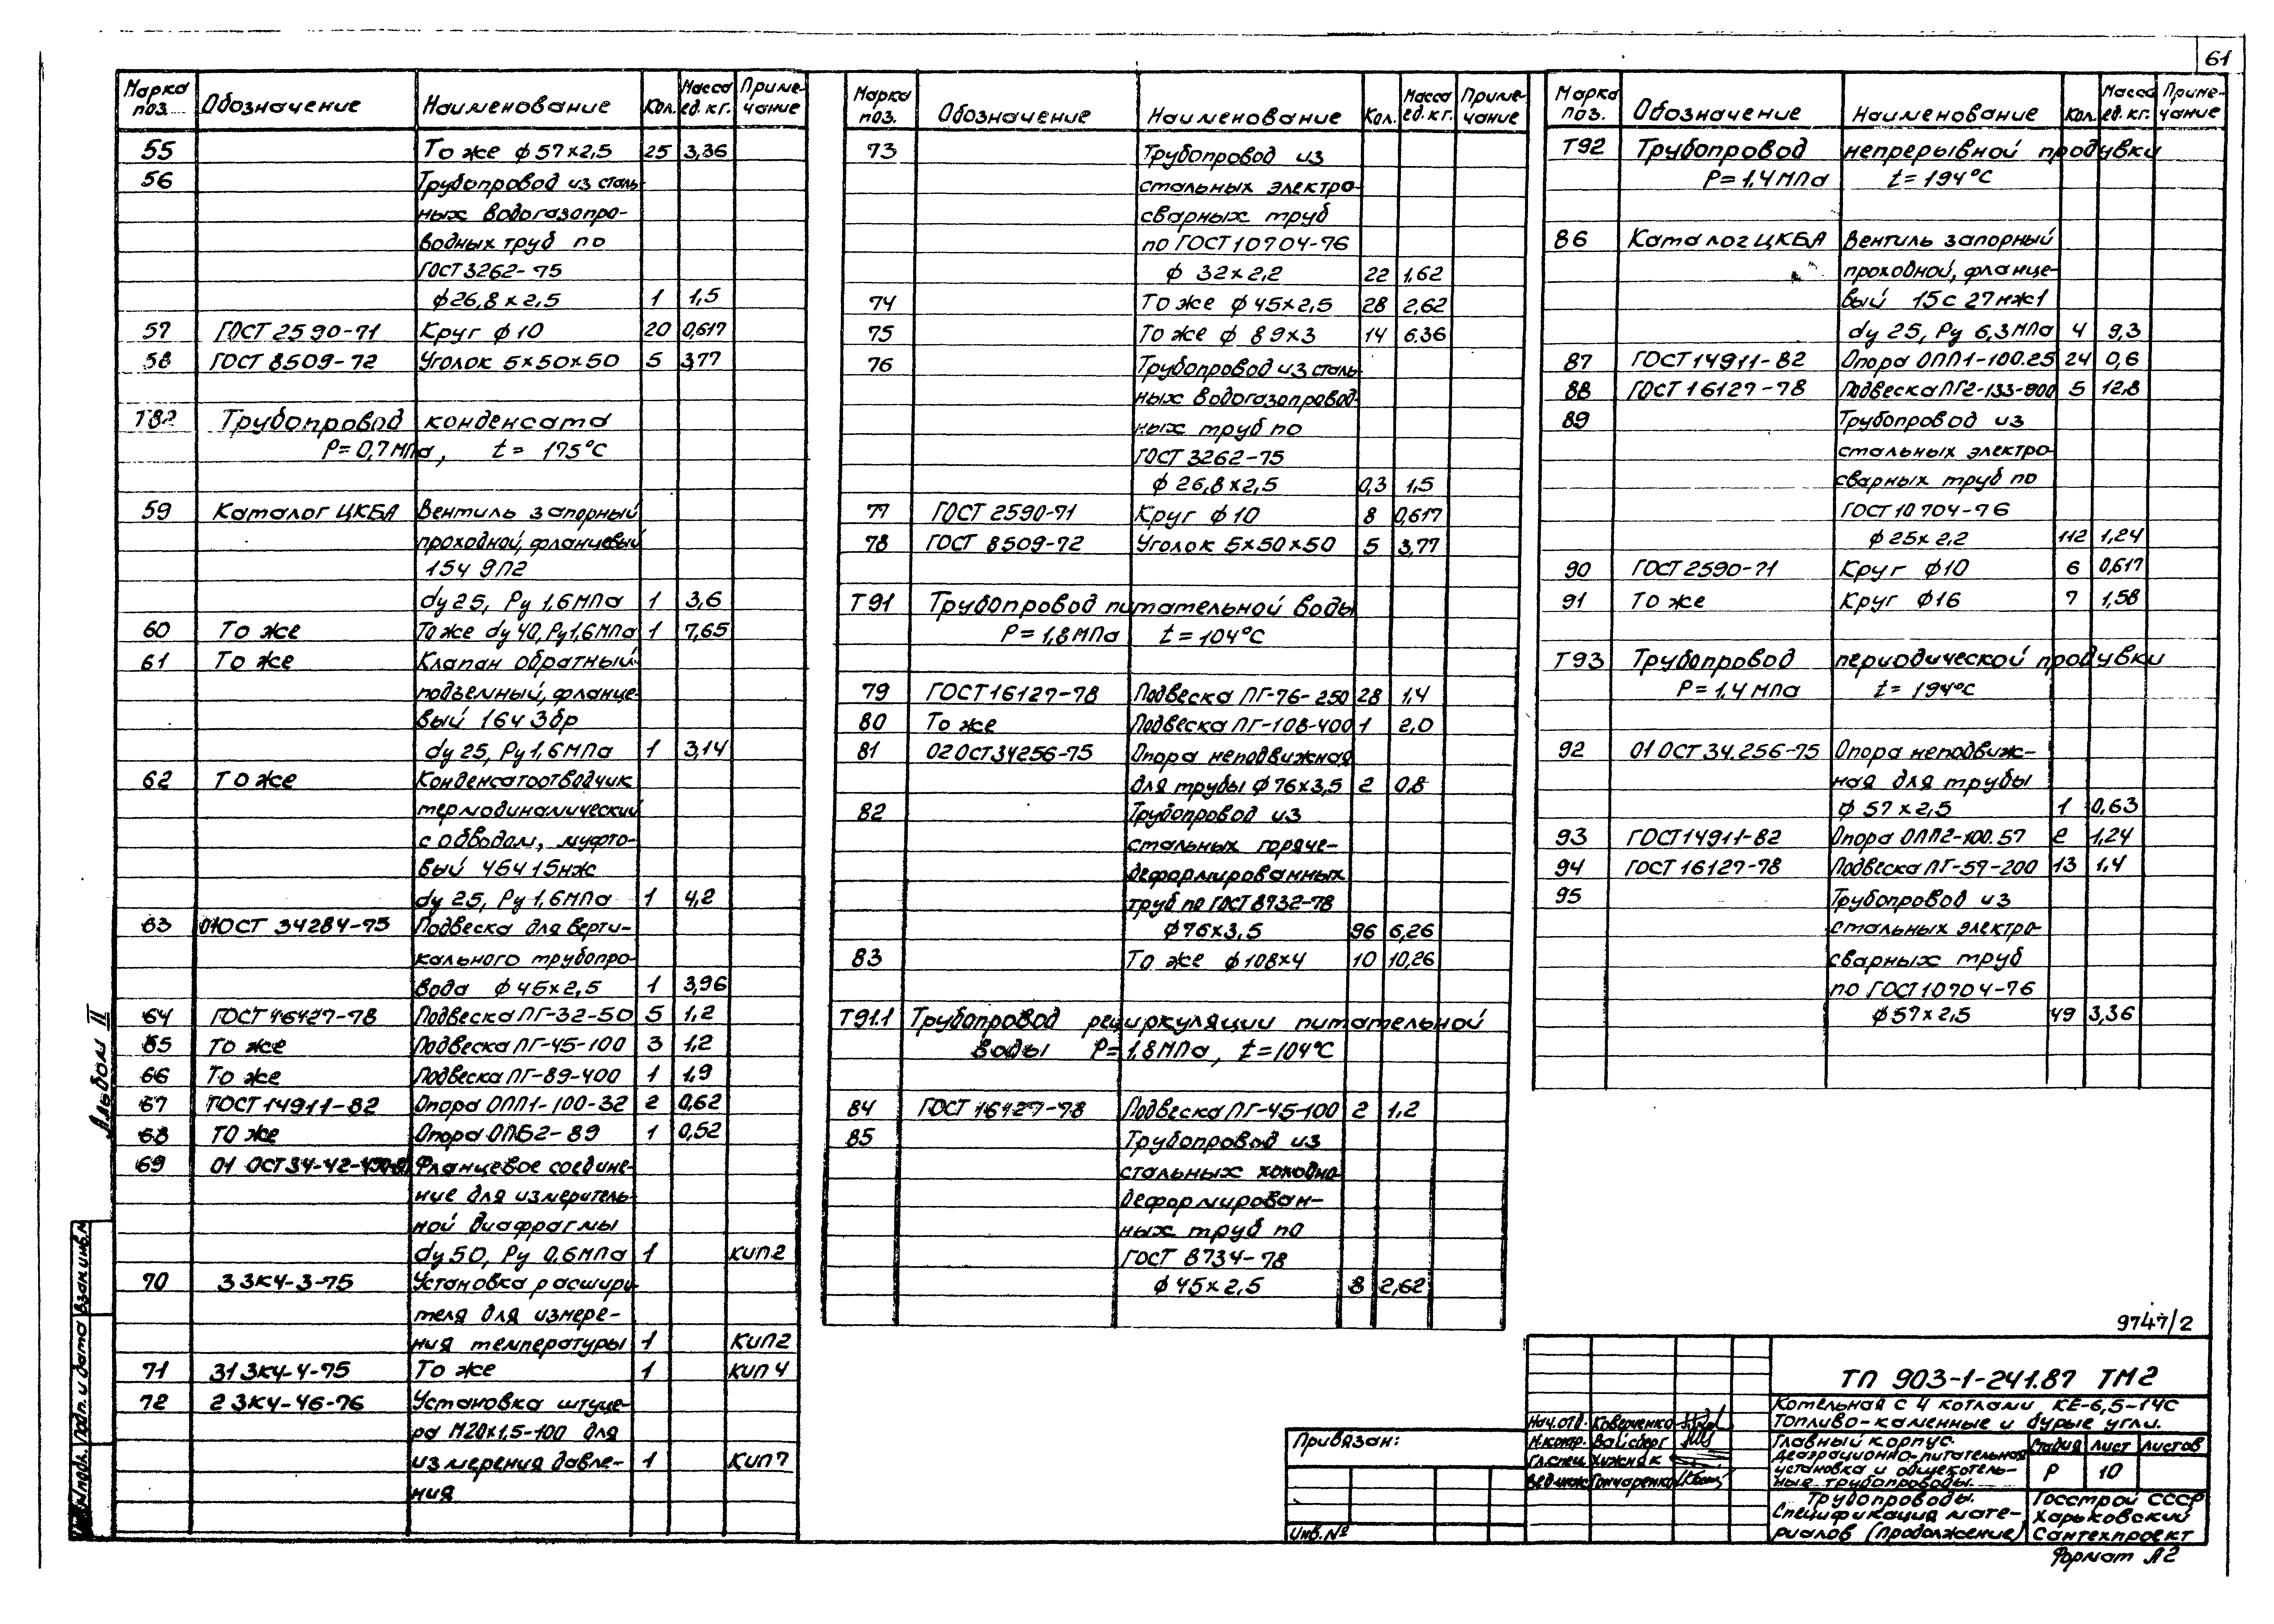 61
Марка поз. Обозначение Наименование Кол. Масса ед. кг. Приме-чание
55 То же ф57×2,5 25 3,36
56 Трубопровод из сталь-
ных водогазопро-
водных труб по
ГОСТ 3262-75
ф26,8×2,5 1 1,5
57 ГОСТ 2590-71 Круг ф10 20 0,617
58 ГОСТ 8509-72 Уголок 5×50×50 5 3,77
Т82 Трубопровод конденсата
Р=0,7МПа, t= 175°С
59 Каталог ЦКБА Вентиль запорный
проходной, фланцевый
15ч 9П2
dу25, Ру 1,6МПа 1 3,6
60 То же То же dу40, Ру1,6МПа 1 7,65
61 То же Клапан обратный
подъемный, фланце-
вый 16ч 3бр
dу 25, Ру1,6МПа 1 3,14
62 То же Конденсатоотводчик
термодинамический
с обводом, муфто-
вый 45ч 15нж
dу 25, Ру1,6МПа 1 4,2
63 01ОСТ 34284-75 Подвеска для верти-
кального трубопро-
вода ф45×2,5 1 3,96
64 ГОСТ 16127-78 Подвеска ПГ-32-50 5 1,2
65 То же Подвеска ПГ-45-100 3 1,2
66 То же Подвеска ПГ-89-400 1 1,9
67 ГОСТ 14911-82 Опора ОПП1-100-32 2 0,62
68 То же Опора ОПБ2-89 1 0,52
69 01 ОСТ34-42- Фланцевое соедине-
ние для измеритель-
ной диафрагмы
dу50, Ру 0,6МПа 1 КИП2
70 3 ЗК4-3-75 Установка расшири-
теля для измере-
ния температуры 1 КИП2
71 31 ЗК4-4-75 То же 1 КИП4
72 2 ЗК4-46-76 Установка штуце-
ра М20×1,5-100 для
измерения давле- 1 КИП7
ния
Марка поз. Обозначение Наименование Кол. Масса ед. кг. Приме-чание
73 Трубопровод из
стальных электро-
сварных труб
по ГОСТ10704-76
ф 32×2,2 22 1,62
74 То же ф45×2,5 28 2,62
75 То же ф 89×3 14 6,36
76 Трубопровод из сталь-
ных водогазопровод-
ных труб по
ГОСТ 3262-75
ф 26,8×2,5 0,3 1,5
77 ГОСТ 2590-71 Круг ф10 8 0,617
78 ГОСТ 8509-72 Уголок 5×50×50 5 3,77
Т91 Трубопровод питательной воды
Р=1,8МПа t=104°С
79 ГОСТ16127-78 Подвеска ПГ-76-250 28 1,4
80 То же Подвеска ПГ-108-400 1 2,0
81 02ОСТ34256-75 Опора неподвижная
для трубы ф76×3,5 2 0,8
82 Трубопровод из
стальных горяче-
деформированных
труб по ГОСТ8732-78
ф76×3,5 96 6,26
83 То же ф108×4 10 10,26
Т91.1 Трубопровод рециркуляции питательной
воды Р=1,8МПа, t=104°С
84 ГОСТ 16127-78 Подвеска ПГ-45-100 2 1,2
85 Трубопровод из
стальных холодно-
деформирован-
ных труб по
ГОСТ 8734-78
ф45×2,5 8 2,62
Марка поз. Обозначение Наименование Кол. Масса ед. кг. Приме-чание
Т92 Трубопровод непрерывной продувки
Р=1,4МПа t=194°С
86 Каталог ЦКБА Вентиль запорный
проходной, фланце-
вый 15с 27нж1
dу 25, Ру 6,3МПа 4 9,3
87 ГОСТ14911-82 Опора ОПП1-100.25 24 0,6
88 ГОСТ 16127-78 Подвеска ПГ2-133-900 5 12,8
89 Трубопровод из
стальных электро-
сварных труб по
ГОСТ 10704-76
ф25×2,2 112 1,24
90 ГОСТ2590-71 Круг ф10 6 0,617
91 То же Круг ф16 7 1,58
Т93 Трубопровод периодической продувки
Р=1,4 МПа t=194°С
92 01ОСТ 34.256-75 Опора неподвиж-
ная для трубы
ф 57×2,5 1 0,63
93 ГОСТ14911-82 Опора ОПП2-100.57 2 1,24
94 ГОСТ 16127-78 Подвеска ПГ-57-200 13 1,4
95 Трубопровод из
стальных электро-
сварных труб
по ГОСТ10704-76
ф57×2,5 49 3,36
Альбом II
Инв.№подл. Подп. и дата Взам.инв.№
9747/2
ТП 903-1-241.87 ТМ2
Котельная с 4 котлами КЕ-6,5-14С
Топливо-каменные и бурые угли.
Нач.отд. Коверченко
Н.контр. Вайсберг
Гл.спец. Хижняк
Вед.инж. Гончаренко
Главный корпус.
Деаэрационно-питательная
установка и общекотель-
ные трубопроводы.
Стадия Лист Листов
Р 10
Трубопроводы.
Спецификация мате-
риалов (продолжение)
Госстрой СССР
Харьковский
Сантехпроект
Привязан:
Инв.№
Формат А2